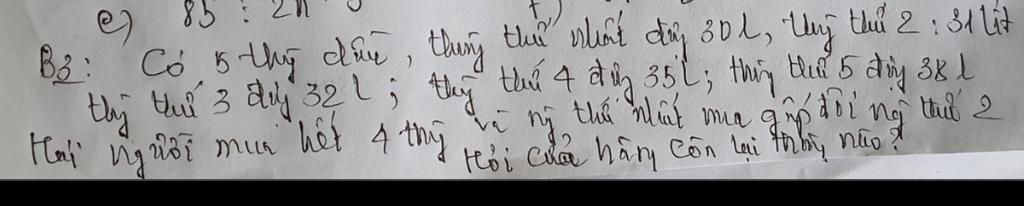 e) 85 : 2n
B3: Có 5 thg dầu, thùng thứ nhất đựg 30 l, thùg thứ 2 : 31 lít
thg thứ 3 đựg 32 l ; thg thứ 4 đựg 35 l ; thùg thứ 5 đựg 38 l
Hai người mua hết 4 thg và ng thứ nhất mua gấp đôi ng thứ 2
Hỏi cửa hàng còn lại thùng nào?